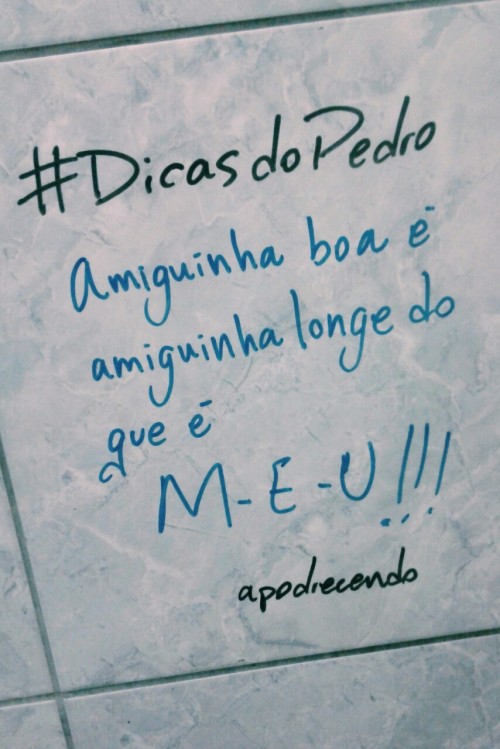 #DicasdoPedro
Amiguinha boa é
amiguinha longe do
que é
M-E-U!!!
apodrecendo